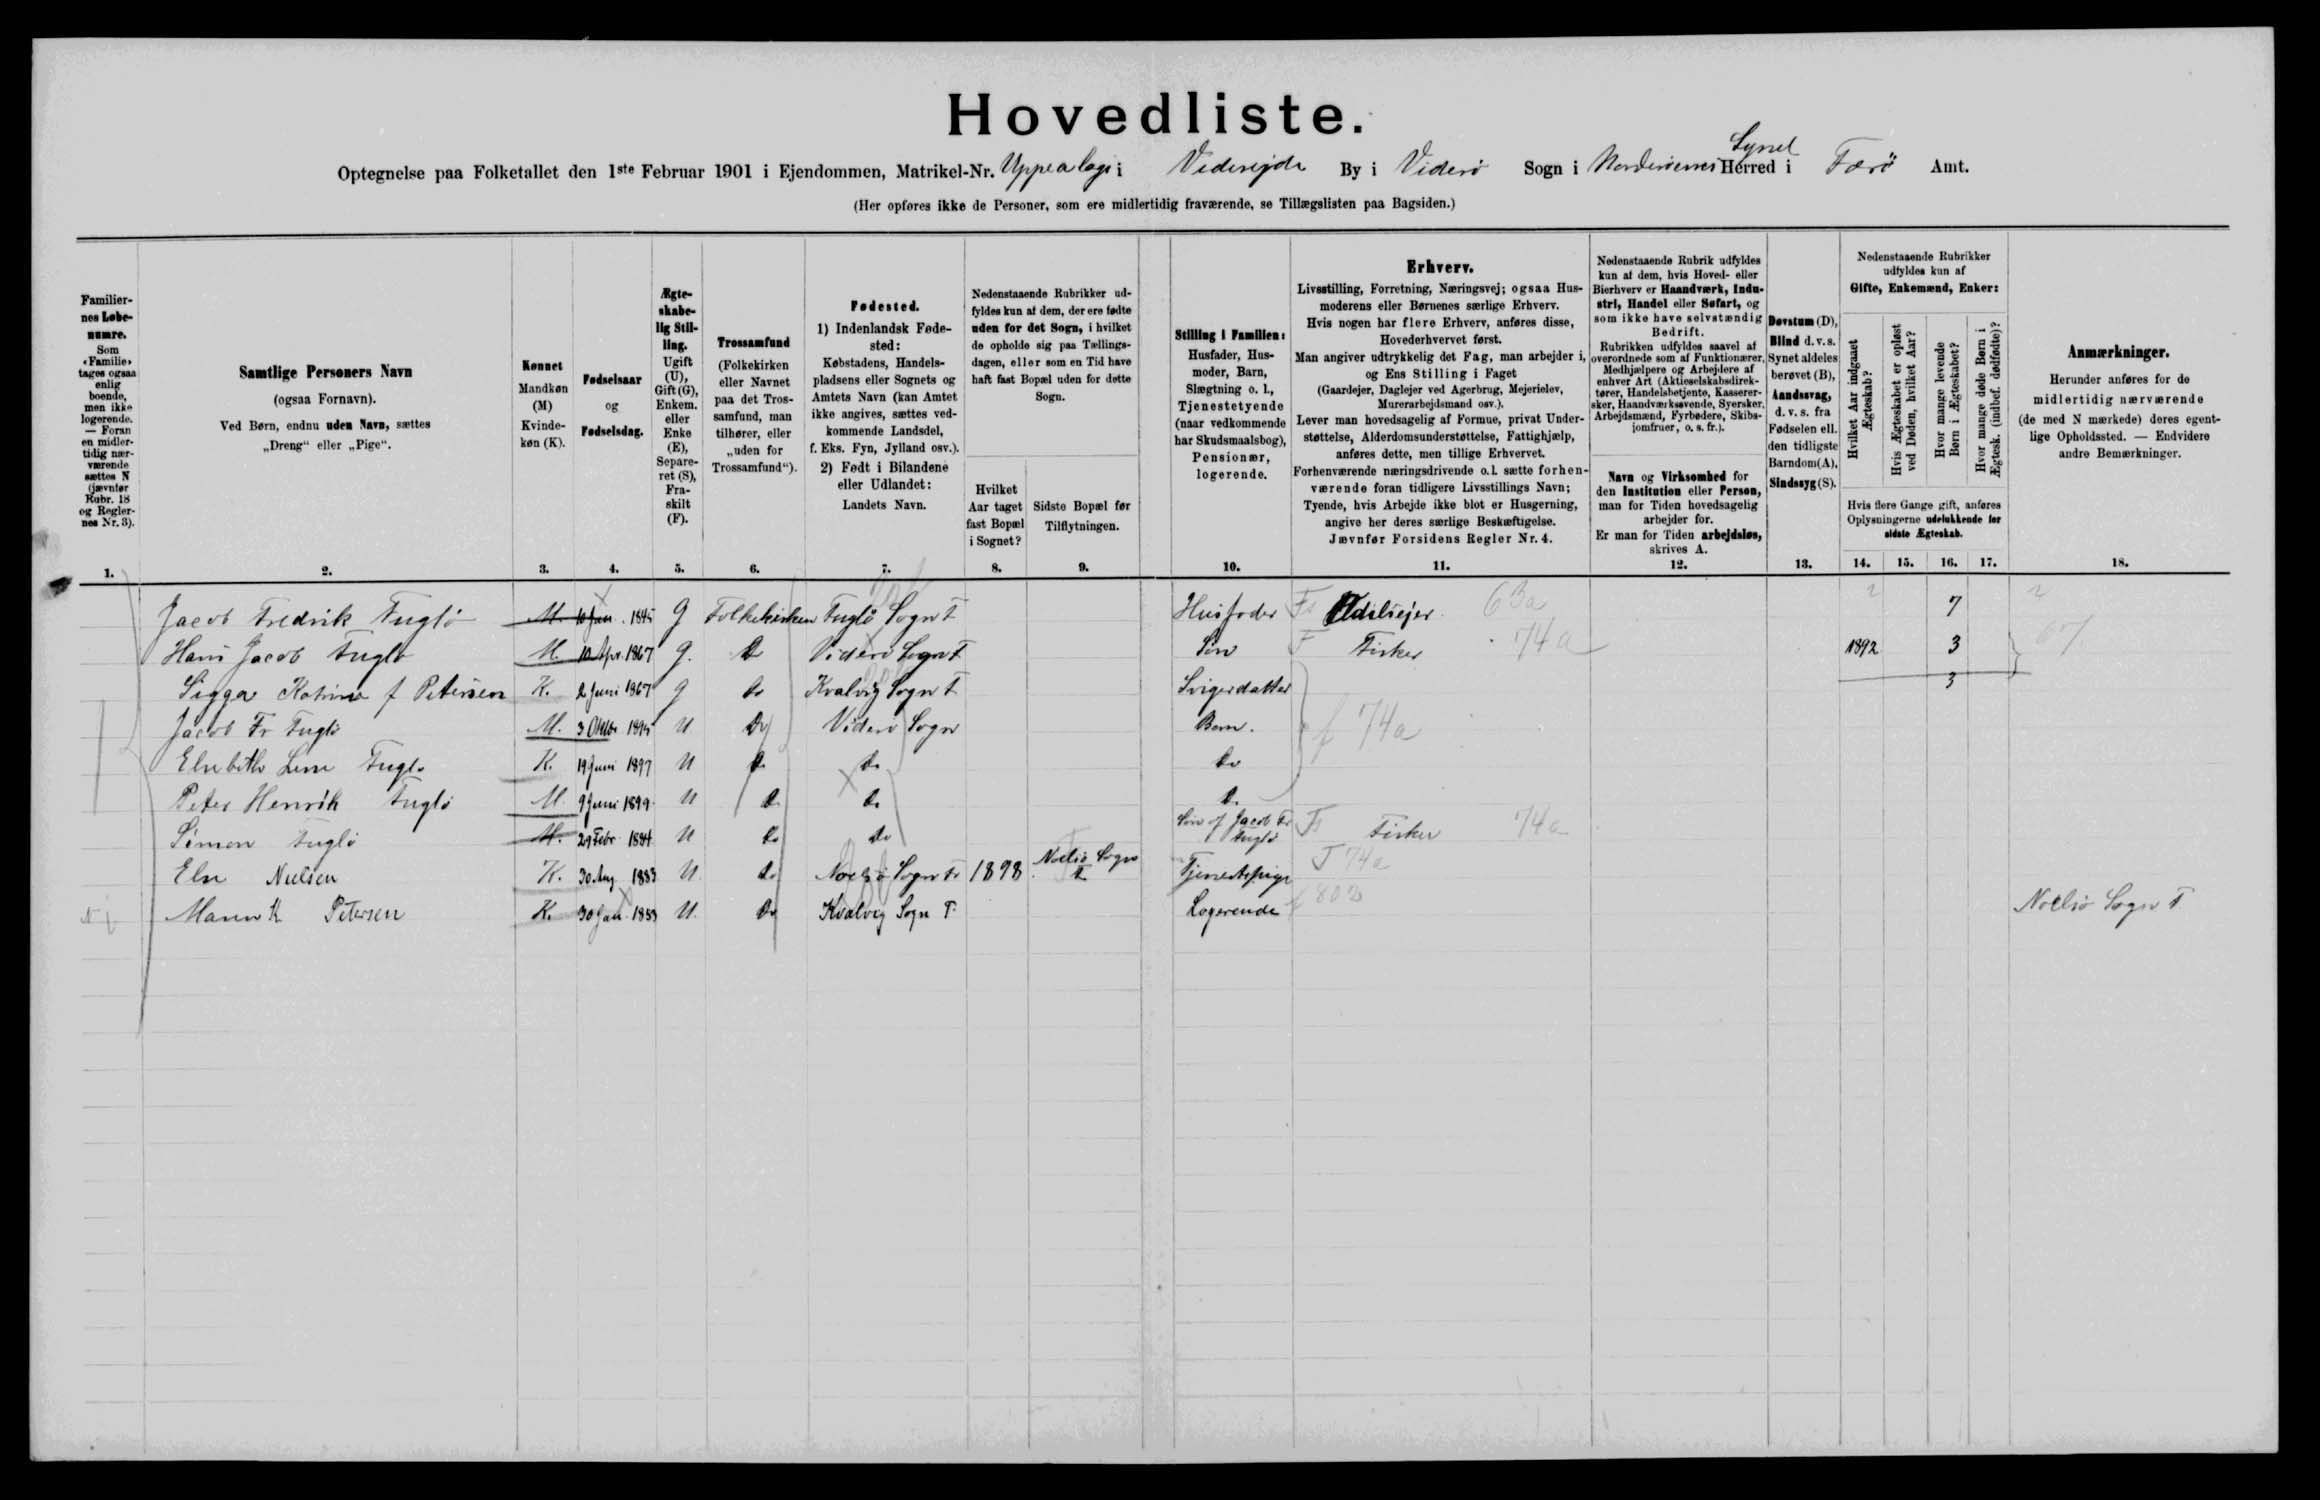 Hovedliste.
Optegnelse paa Folketallet den 1ste Februar 1901 i Ejendommen, Matrikel-Nr. Uppealage i Videreide By i Viderø Sogn i Norderøernes Herred i Færø Amt.
Syssel
(Her opføres ikke de Personer, som ere midlertidig fraværende, se Tillægslisten paa Bagsiden.)
Familiernes Løbenumre.
Som «Familie» tages ogsaa enlig boende, men ikke logerende. — Foran en midlertidig nærværende sættes N (jævnfør Rubr. 18 og Reglernes Nr. 3).
Samtlige Personers Navn
(ogsaa Fornavn).
Ved Børn, endnu uden Navn, sættes
„Dreng“ eller „Pige“.
Kønnet
Mandkøn (M)
Kvindekøn (K).
Fødselsaar
og
Fødselsdag.
Ægteskabelig Stilling.
Ugift (U), Gift (G), Enkem. eller Enke (E), Separeret (S), Fraskilt (F).
Trossamfund
(Folkekirken eller Navnet paa det Trossamfund, man tilhører, eller „uden for Trossamfund“).
Fødested.
1) Indenlandsk Fødested:
Købstadens, Handelspladsens eller Sognets og Amtets Navn (kan Amtet ikke angives, sættes vedkommende Landsdel, f. Eks. Fyn, Jylland osv.).
2) Født i Bilandene eller Udlandet:
Landets Navn.
Nedenstaaende Rubrikker udfyldes kun af dem, der ere fødte uden for det Sogn, i hvilket de opholde sig paa Tællingsdagen, eller som en Tid have haft fast Bopæl uden for dette Sogn.
Hvilket Aar taget fast Bopæl i Sognet?
Sidste Bopæl før Tilflytningen.
Stilling i Familien:
Husfader, Husmoder, Barn, Slægtning o. l., Tjenestetyende (naar vedkommende har Skudsmaalsbog), Pensionær, logerende.
Erhverv.
Livsstilling, Forretning, Næringsvej; ogsaa Husmoderens eller Børnenes særlige Erhverv.
Hvis nogen har flere Erhverv, anføres disse, Hovederhvervet først.
Man angiver udtrykkelig det Fag, man arbejder i, og Ens Stilling i Faget
(Gaardejer, Daglejer ved Agerbrug, Mejerielev, Murerarbejdsmand osv.).
Lever man hovedsagelig af Formue, privat Understøttelse, Alderdomsunderstøttelse, Fattighjælp, anføres dette, men tillige Erhvervet.
Forhenværende næringsdrivende o. l. sætte forhenværende foran tidligere Livsstillings Navn;
Tyende, hvis Arbejde ikke blot er Husgerning, angive her deres særlige Beskæftigelse.
Jævnfør Forsidens Regler Nr. 4.
Nedenstaaende Rubrik udfyldes kun af dem, hvis Hoved- eller Bierhverv er Haandværk, Industri, Handel eller Søfart, og som ikke have selvstændig Bedrift.
Rubrikken udfyldes saavel af overordnede som af Funktionærer, Medhjælpere og Arbejdere af enhver Art (Aktieselskabsdirektører, Handelsbetjente, Kasserersker, Haandværkssvende, Syersker, Arbejdsmænd, Fyrbødere, Skibsjomfruer, o. s. fr.).
Navn og Virksomhed for den Institution eller Person, man for Tiden hovedsagelig arbejder for.
Er man for Tiden arbejdsløs, skrives A.
Døvstum (D), Blind d. v. s. Synet aldeles berøvet (B), Aandssvag, d. v. s. fra Fødselen ell. den tidligste Barndom (A), Sindssyg (S).
Nedenstaaende Rubrikker udfyldes kun af
Gifte, Enkemænd, Enker:
Hvilket Aar indgaaet Ægteskab?
Hvis Ægteskabet er opløst ved Døden, hvilket Aar?
Hvor mange levende Børn i Ægteskabet?
Hvor mange døde Børn i Ægtesk. (indbef. dødfødte)?
Hvis flere Gange gift, anføres Oplysningerne udelukkende for sidste Ægteskab.
Anmærkninger.
Herunder anføres for de midlertidig nærværende (de med N mærkede) deres egentlige Opholdssted. — Endvidere andre Bemærkninger.
1. 2. 3. 4. 5. 6. 7. 8. 9. 10. 11. 12. 13. 14. 15. 16. 17. 18.
Jacob Fredrik Fuglø M. 10 Jan. 1845 G Folkekirken Fuglø Sogn F Husfader Fs Odelsejer 63a 7
Hans Jacob Fuglø M. 10 Apr. 1867 G. Do Viderø Sogn F Søn F Fisker 74a 1892 3 67
Sigga Katrine f Petersen K. 2 Juni 1867 G do Kvalvig Sogn F Svigerdatter 3
Jacob Fr Fuglø M. 3 Oktbr 1894 U Do Viderø Sogn Barn. f 74a
Elsebeth Lene Fuglø K. 19 Juni 1897 U do do do
Peter Henrik Fuglø M. 9 Juni 1899 U do do do
Simon Fuglø M. 29 Febr 1884 U do do Søn af Jacob Fr Fuglø Fs Fisker 74a
Else Nielsen K. 30 Aug 1883 U. do Noelsø Sogn F 1898 Nolsø Sogn F Tjenestepige T 74a
N Maren K Petersen K. 30 Jan 1883 U. do Kvalvig Sogn F. Logerende f 80b Nolsø Sogn F.